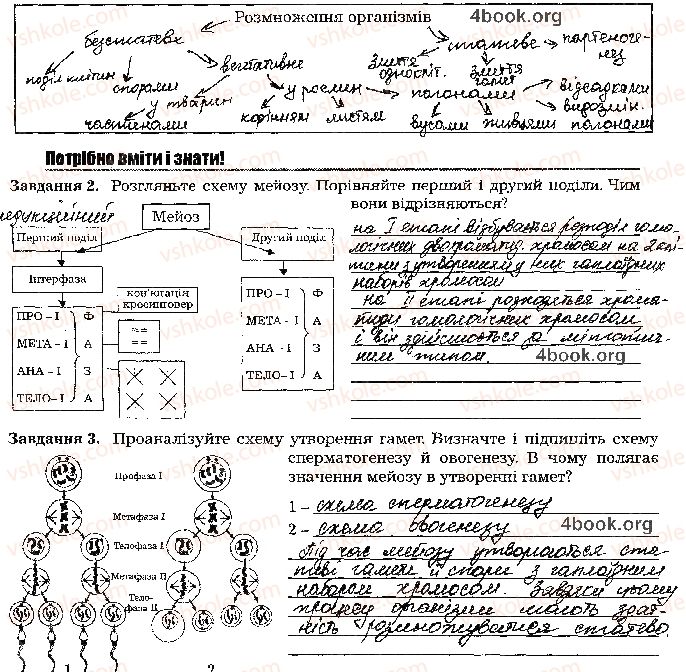 Розмноження організмів 4book.org
безстатеве статеве партеногенез
поділ клітин спорами вегетативне злиття одноклітин. злиття гамет
у тварин у рослин пагонами відсадками
частинами корінням листям вусами живцями видозмін. пагонами
Потрібно вміти і знати!
Завдання 2. Розгляньте схему мейозу. Порівняйте перший і другий поділи. Чим
вони відрізняються?
редукційний
Мейоз
Перший поділ Другий поділ
Інтерфаза
кон'югація
кросинговер
ПРО - І Ф
МЕТА - І А
АНА - І З
ТЕЛО - І А
ПРО - І Ф
МЕТА - І А
АНА - І З
ТЕЛО- І А
на І етапі відбувається розподіл гомо-
логічних хромосом на 2 клі-
тини з утворенням у них гаплоїдних
наборів хромосом
на ІІ етапі розходяться хрома-
тиди гомологічних хромосом
і він здійснюється за мітотич-
ним типом. 4book.org
Завдання 3. Проаналізуйте схему утворення гамет. Визначте і підпишіть схему
сперматогенезу й овогенезу. В чому полягає
значення мейозу в утворенні гамет?
Профаза І
Метафаза І
Телофаза І
Метафаза ІІ
Тело-
фаза ІІ
1 2
1 – схема сперматогенезу
2 – схема овогенезу 4book.org
Під час мейозу утворюються ста-
теві гамети й спори з гаплоїдним
набором хромосом. Завдяки цьому
процесу організми мають здат-
ність розмножуватися статево.
vshkole.com